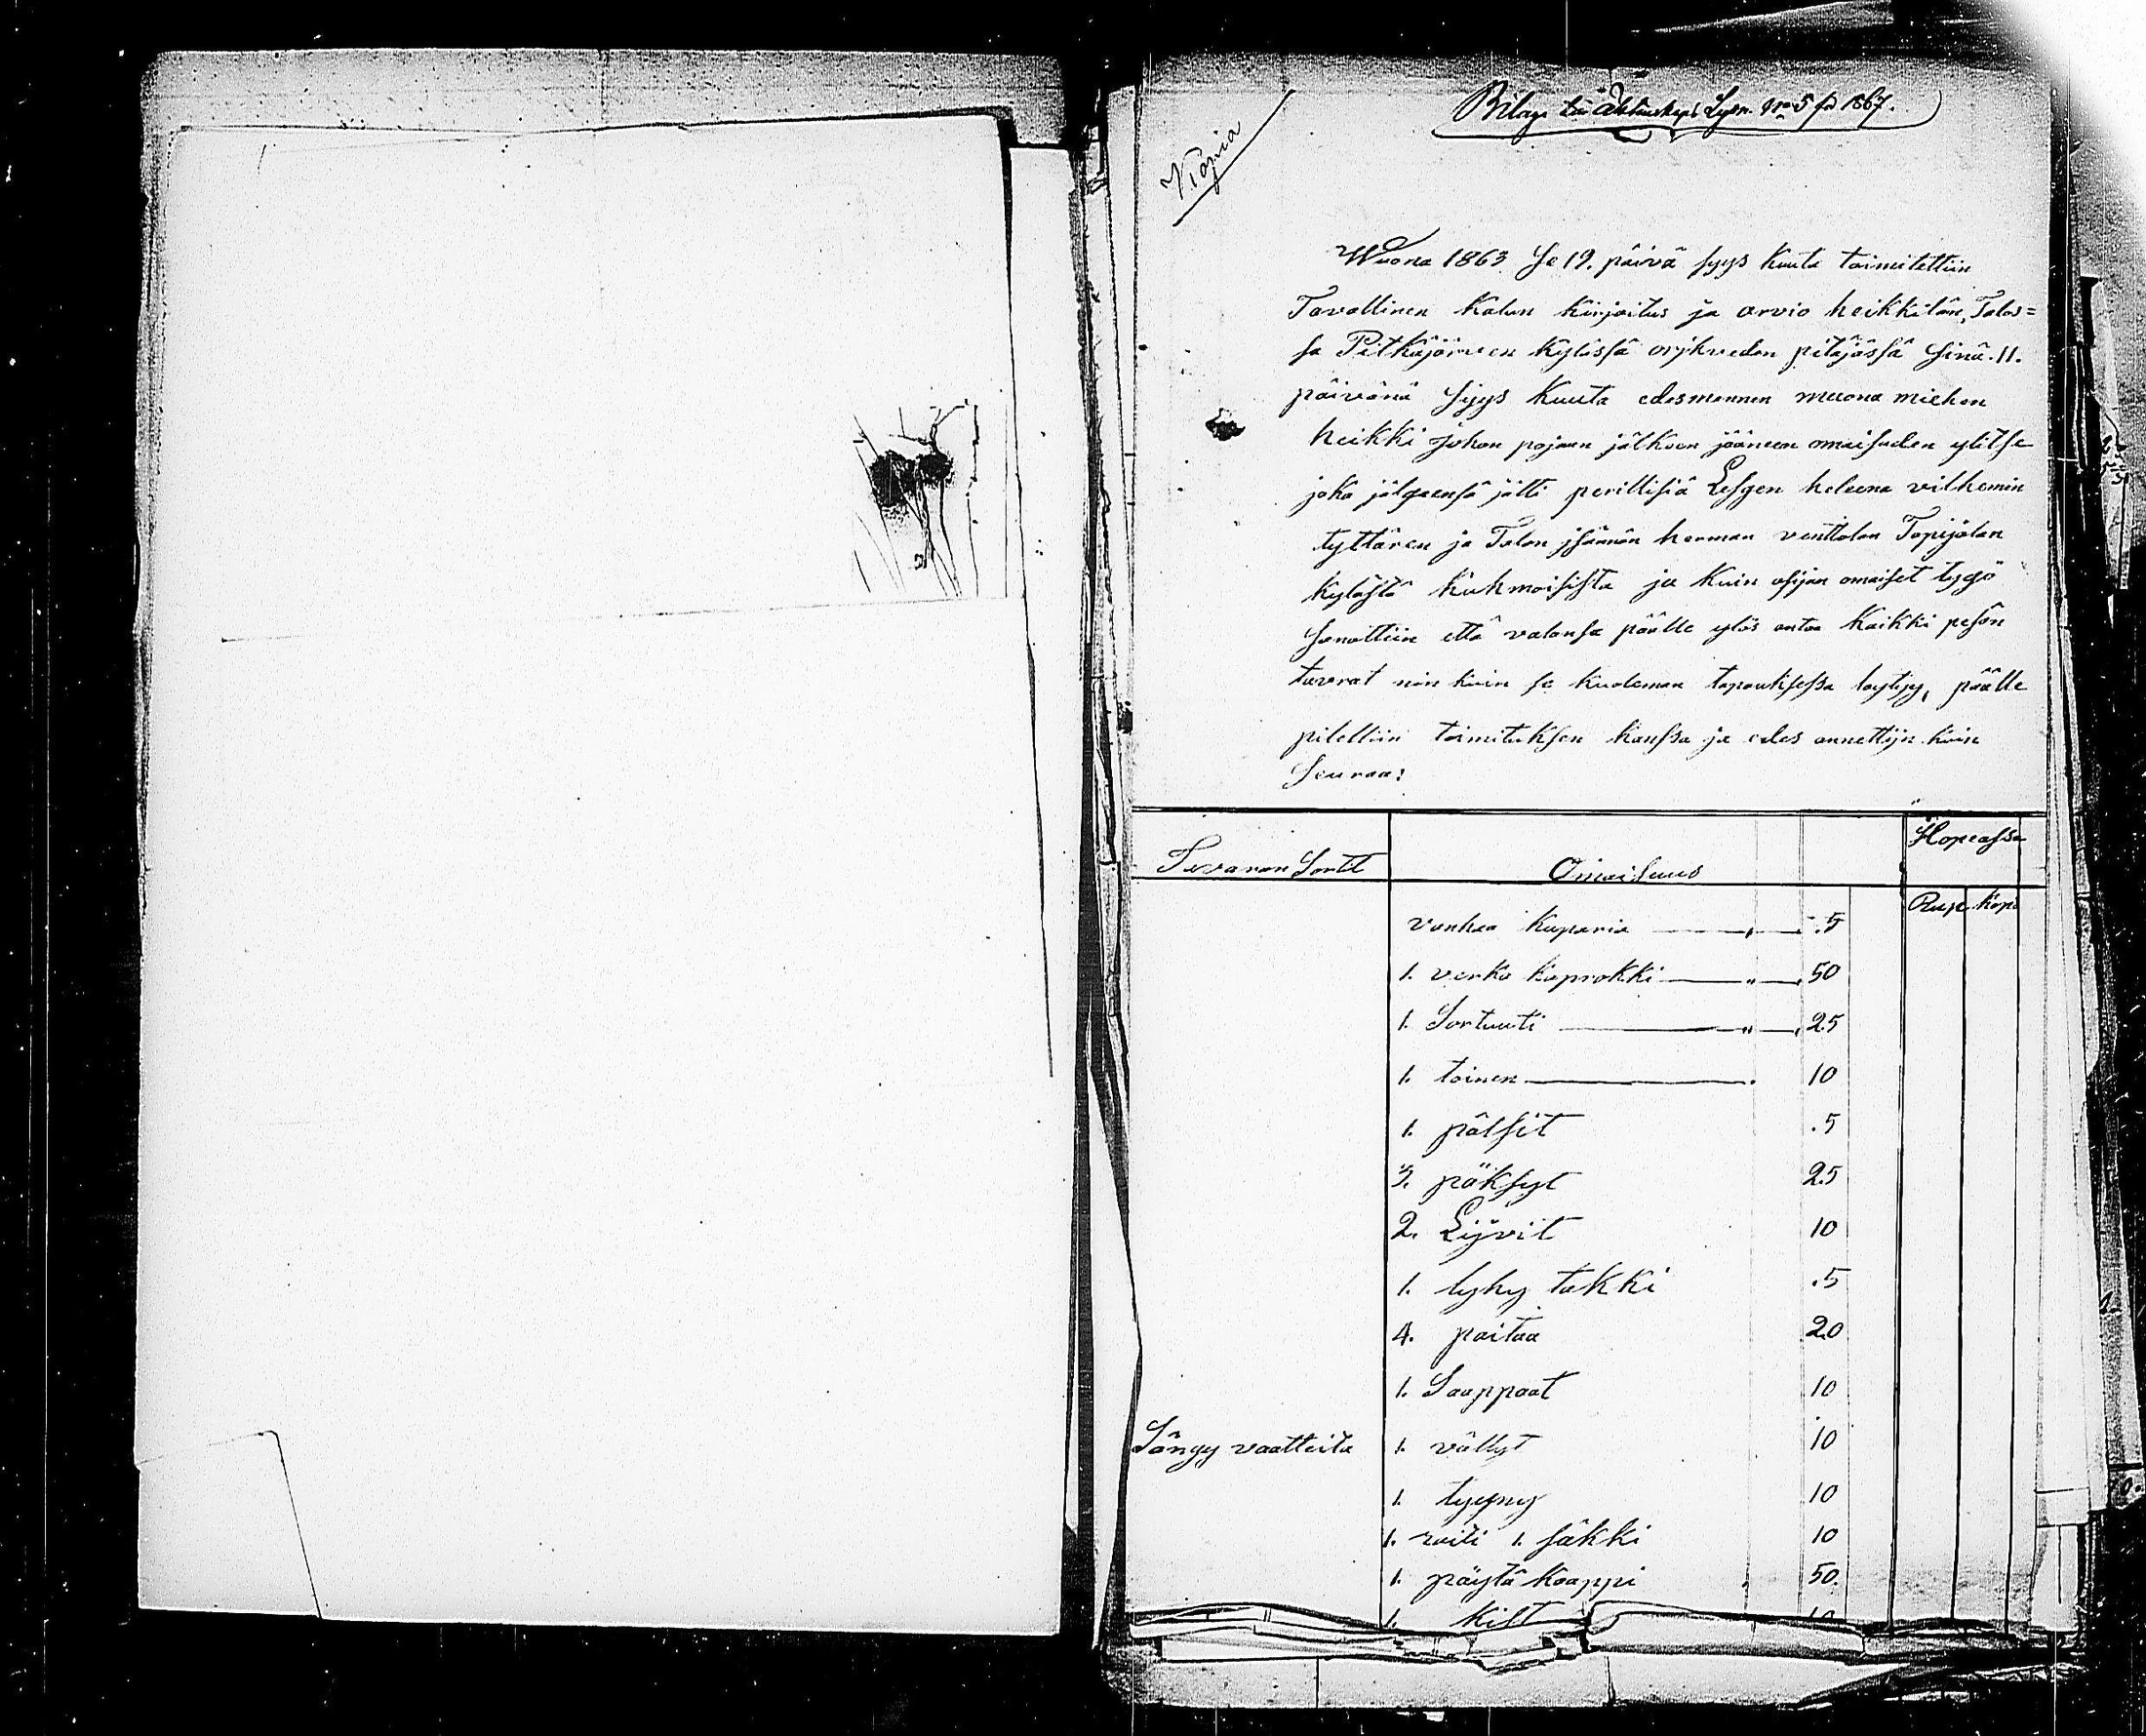 Bilaga till Lysn. No 5 för 1867.
Kopia
Wuona 1863 Se 19. päivä syys kuuta toimitettiin
Tavallinen kalun kirjoitus ja arvio heikkilän, Talos=
sa Pitkäjärven kylässä orihveden pitäjässä Sinä .11.
päivänä Syys kuuta edesmennen muona miehen
heikki Johan pojan jälkeen jääneen omaisuden ylitse
joka jälgeensä jätti perillisiä Lesgen heleena vilhemin
tyttären ja Talon jsännän herman venttolan Tapijalan
kylästä kuhmoisista ja kuin asijan omaiset tygö
Sanottiin että valansa päälle ylös antaa kaikki pesän
tavarat nin kuin se kuoleman tapauksessa löytyy, päälle
pitettiin toimituksen kanssa ja edes annettijn kuin
Seuraa:
Tavaran Sortit Omaisuus Hopeassa
Rup kop
vanhaa kuparia " .5
1. verka kaprokki " 50
1. Sortuuti " 25
1. toinen 10
1. pälsit .5
3. pöksyt 25
2. Lijvit 10
1. lyhy takki .5
4. paitaa 20
1. Saappaat 10
Sängy vaatteita 1. vällyt 10
1. tyyny 10
1. raiti 1. säkki 10
1. pöytä kaappi 50.
1. kist